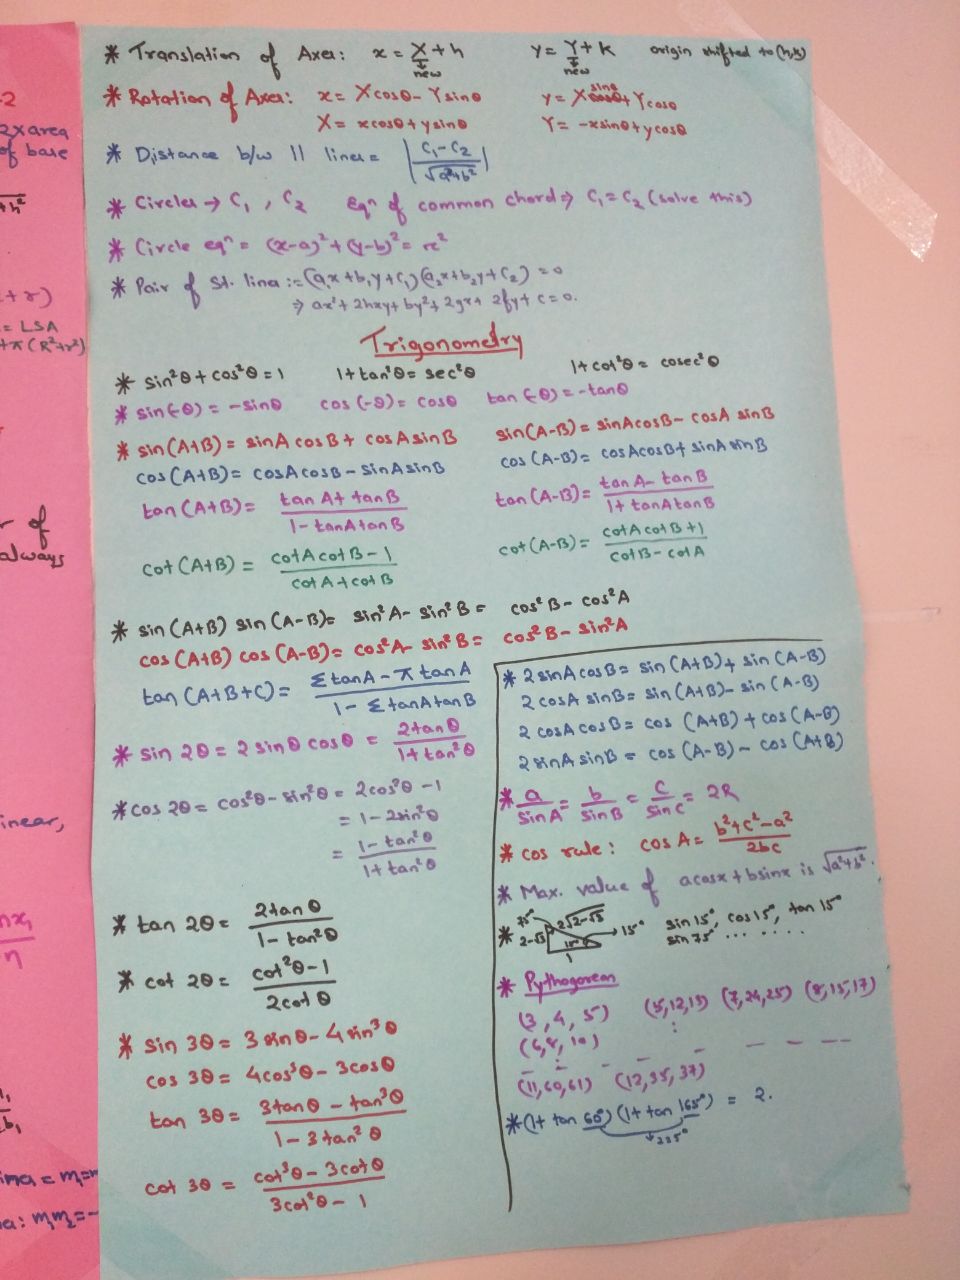 * Translation of Axes: x = X + h y = Y + k origin shifted to (h,k)
new new
* Rotation of Axes: x = X cosθ - Y sinθ y = X sinθ + Y cosθ
X = x cosθ + y sinθ Y = -x sinθ + y cosθ
* Distance b/w || lines = |C₁-C₂ / √a²+b²|
* Circles → C₁, C₂ Eqⁿ of common chord ⇒ C₁ = C₂ (solve this)
* Circle eqⁿ = (x-a)² + (y-b)² = r²
* Pair of St. lines := (a₁x+b₁y+c₁)(a₂x+b₂y+c₂) = 0
⇒ ax²+2hxy+by²+2gx+2fy+c = 0.
Trigonometry
* sin²θ + cos²θ = 1 1+tan²θ = sec²θ 1+cot²θ = cosec²θ
* sin(-θ) = -sinθ cos(-θ) = cosθ tan(-θ) = -tanθ
* sin(A+B) = sinA cosB + cosA sinB sin(A-B) = sinA cosB - cosA sinB
cos(A+B) = cosA cosB - sinA sinB cos(A-B) = cosA cosB + sinA sinB
tan(A+B) = tanA + tanB / 1 - tanA tanB tan(A-B) = tanA - tanB / 1 + tanA tanB
cot(A+B) = cotA cotB - 1 / cotA + cotB cot(A-B) = cotA cotB + 1 / cotB - cotA
* sin(A+B) sin(A-B) = sin²A - sin²B = cos²B - cos²A
cos(A+B) cos(A-B) = cos²A - sin²B = cos²B - sin²A
tan(A+B+C) = ΣtanA - π tanA / 1 - Σ tanA tanB
* sin 2θ = 2 sinθ cosθ = 2tanθ / 1+tan²θ
* cos 2θ = cos²θ - sin²θ = 2cos²θ - 1
= 1 - 2sin²θ
= 1 - tan²θ / 1 + tan²θ
* tan 2θ = 2tanθ / 1 - tan²θ
* cot 2θ = cot²θ - 1 / 2cotθ
* sin 3θ = 3 sinθ - 4 sin³θ
cos 3θ = 4cos³θ - 3cosθ
tan 3θ = 3tanθ - tan³θ / 1 - 3tan²θ
cot 3θ = cot³θ - 3cotθ / 3cot²θ - 1
* 2 sinA cosB = sin(A+B) + sin(A-B)
2 cosA sinB = sin(A+B) - sin(A-B)
2 cosA cosB = cos(A+B) + cos(A-B)
2 sinA sinB = cos(A-B) - cos(A+B)
* a / sinA = b / sinB = c / sinC = 2R
* cos rule : cosA = b²+c²-a² / 2bc
* Max. value of acosx + bsinx is √a²+b².
* 75° 2√2-√3 2-√3 15° 1 → 15° sin15°, cos15°, tan15°
sin75° .......
* Pythagorean
(3, 4, 5) (5,12,13) (7,24,25) (8,15,17)
(6,8,10)
(11,60,61) (12,35,37)
* (1+tan 60°)(1+tan 165°) = 2.
225°
-2
2 x area
of base
+h²
+r)
= LSA
+π(R²+r²)
r of
always
inear,
nx₁
n
b₁
= m₁=m
: m₁m₂=-